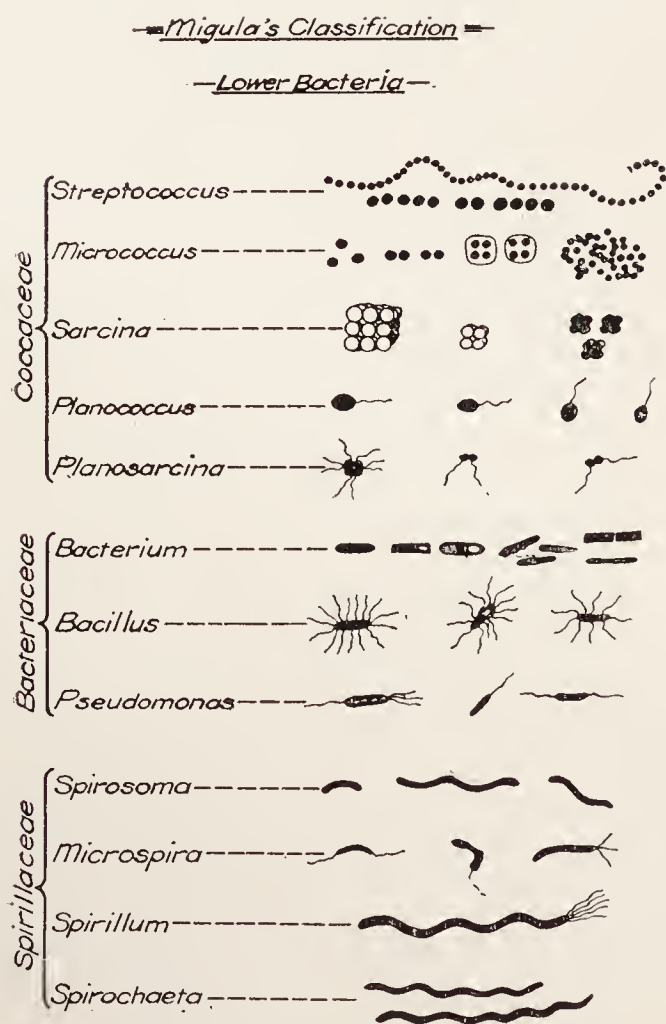 Migula's Classification
Lower Bacteria
Coccaceae
Streptococcus
Micrococcus
Sarcina
Planococcus
Planosarcina
Bacteriaceae
Bacterium
Bacillus
Pseudomonas
Spirillaceae
Spirosoma
Microspira
Spirillum
Spirochaeta